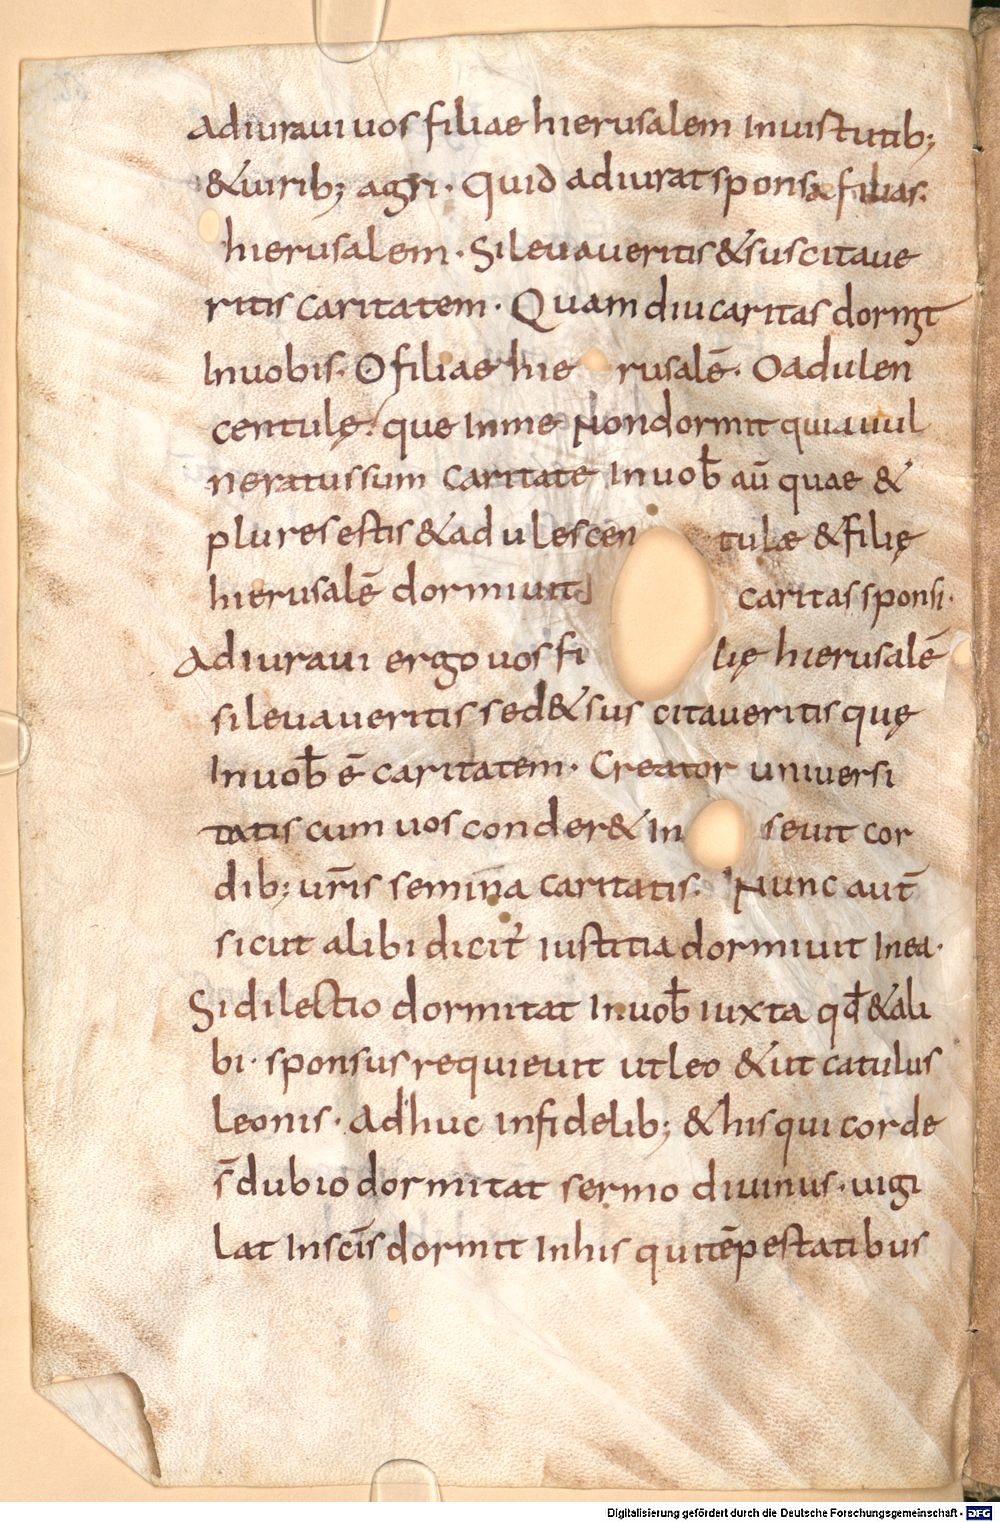 Adiuraui uos filiae hierusalem Inuirtutib;
& uirib; agri · Quid adiurat sponsa filias
hierusalem · Si leuaueritis & suscitaue
ritis caritatem · Quamdiu caritas dormit
Inuobis · O filiae hierusalē · O adulen
centulę · que Inme Non dormit quia uul
neratus sum caritate Inuob̄ aū quae &
plures estis & adulescentulæ & filię
hierusalē dormiuit caritas sponsi ·
Adiuraui ergo uos filię hierusalē
si leuaueritis sed & suscitaueritis quę
Inuob̄ ē caritatem · Creator uniuersi
tatis cum uos conder& Inseuit cor
dib; ur̄is semina caritatis · Nunc aut̄
sicut alibi dicit̄ iustitia dormiuit Inea ·
Si dilectio dormitat Inuob̄ iuxta qd̄ & ali
bi · sponsus requieuit ut leo & ut catulus
leonis · Adhuc infidelib; & his qui corde
s̄ dubio dormitat sermo diuinus · uigi
lat Insc̄is dormit Inhis qui tēpestatibus
Digitalisierung gefördert durch die Deutsche Forschungsgemeinschaft - DFG